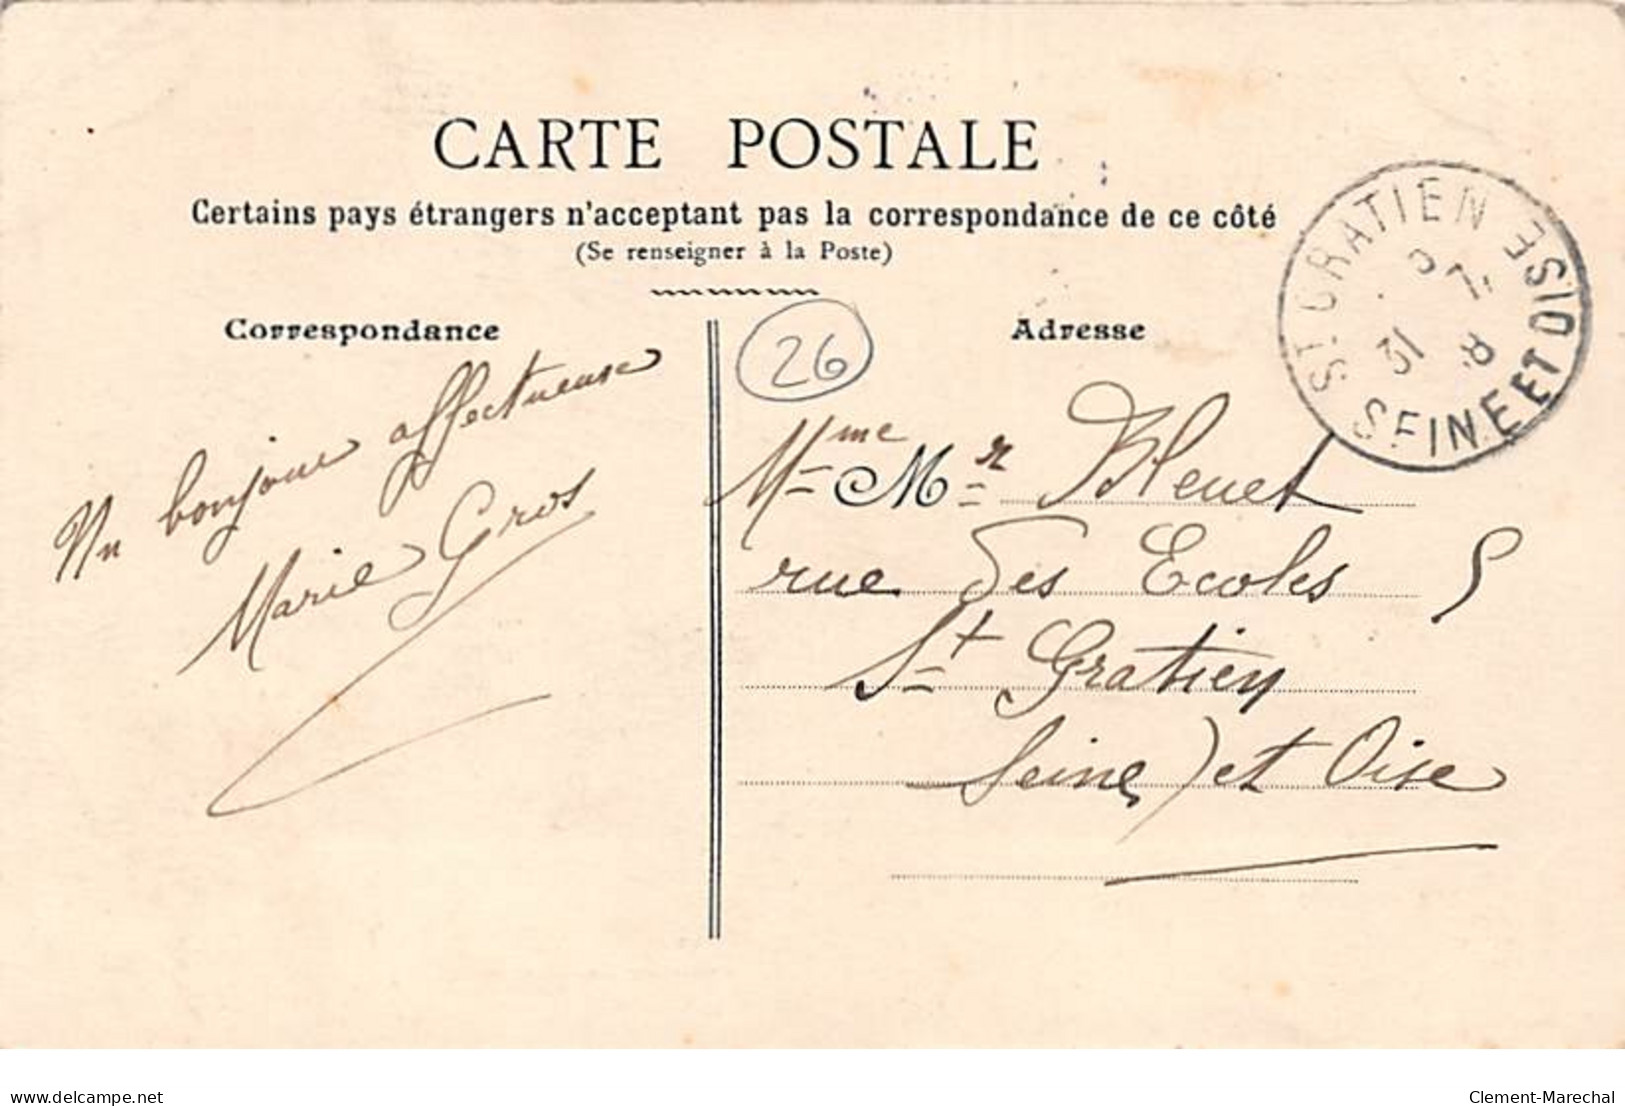 CARTE POSTALE
Certains pays étrangers n'acceptant pas la correspondance de ce côté
(Se renseigner à la Poste)
Correspondance
Un bonjour affectueuse
Marie Gros
26
Adresse
ST GRATIEN
31 8
SEINE ET OISE
Mme Mr Bleuet
rue des Ecoles 5
St Gratien
Seine et Oise
www.delcampe.net
Clement-Marechal